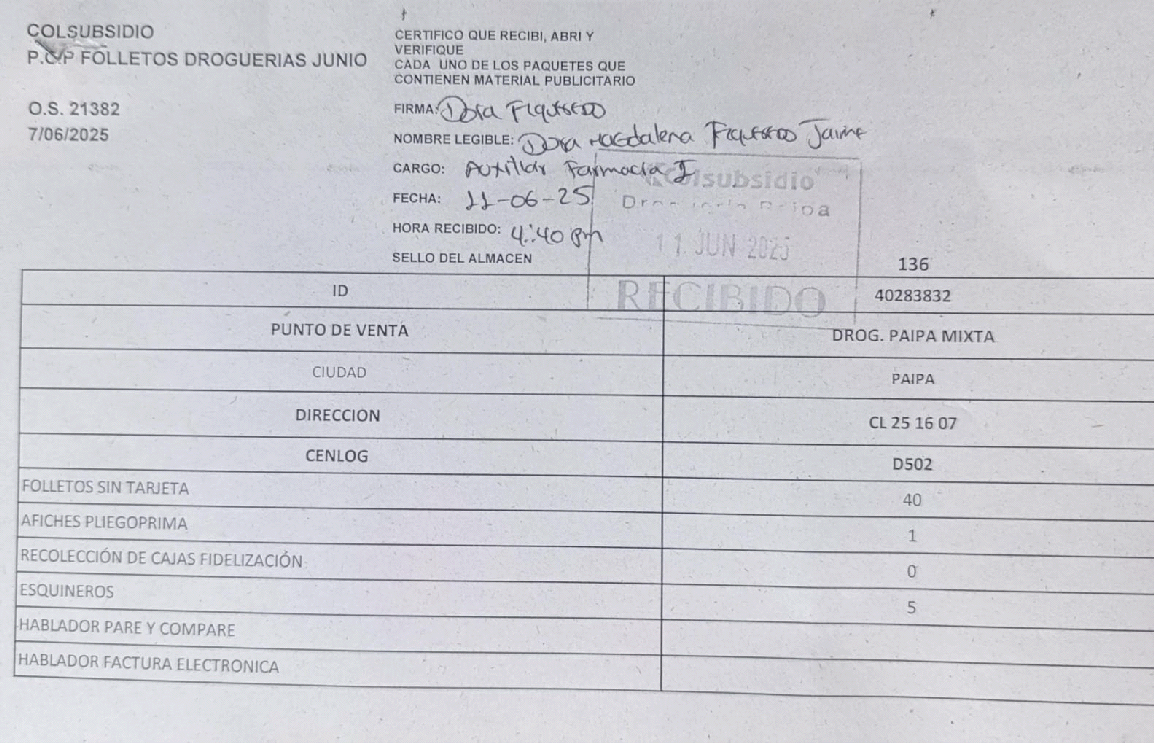 COLSUBSIDIO
P.O/P FOLLETOS DROGUERIAS JUNIO
O.S. 21382
7/06/2025
CERTIFICO QUE RECIBI, ABRI Y
VERIFIQUE
CADA UNO DE LOS PAQUETES QUE
CONTIENEN MATERIAL PUBLICITARIO
FIRMA: Dora Figueredo
NOMBRE LEGIBLE: Dora Magdalena Figueredo Jaime
CARGO: Auxiliar Farmacia I
FECHA: 11-06-25
HORA RECIBIDO: 4:40 pm
SELLO DEL ALMACEN
Colsubsidio
Paipa
11 JUN 2025
RECIBIDO
136
ID 40283832
PUNTO DE VENTA DROG. PAIPA MIXTA
CIUDAD PAIPA
DIRECCION CL 25 16 07
CENLOG D502
FOLLETOS SIN TARJETA 40
AFICHES PLIEGOPRIMA 1
RECOLECCIÓN DE CAJAS FIDELIZACIÓN 0
ESQUINEROS 5
HABLADOR PARE Y COMPARE
HABLADOR FACTURA ELECTRONICA